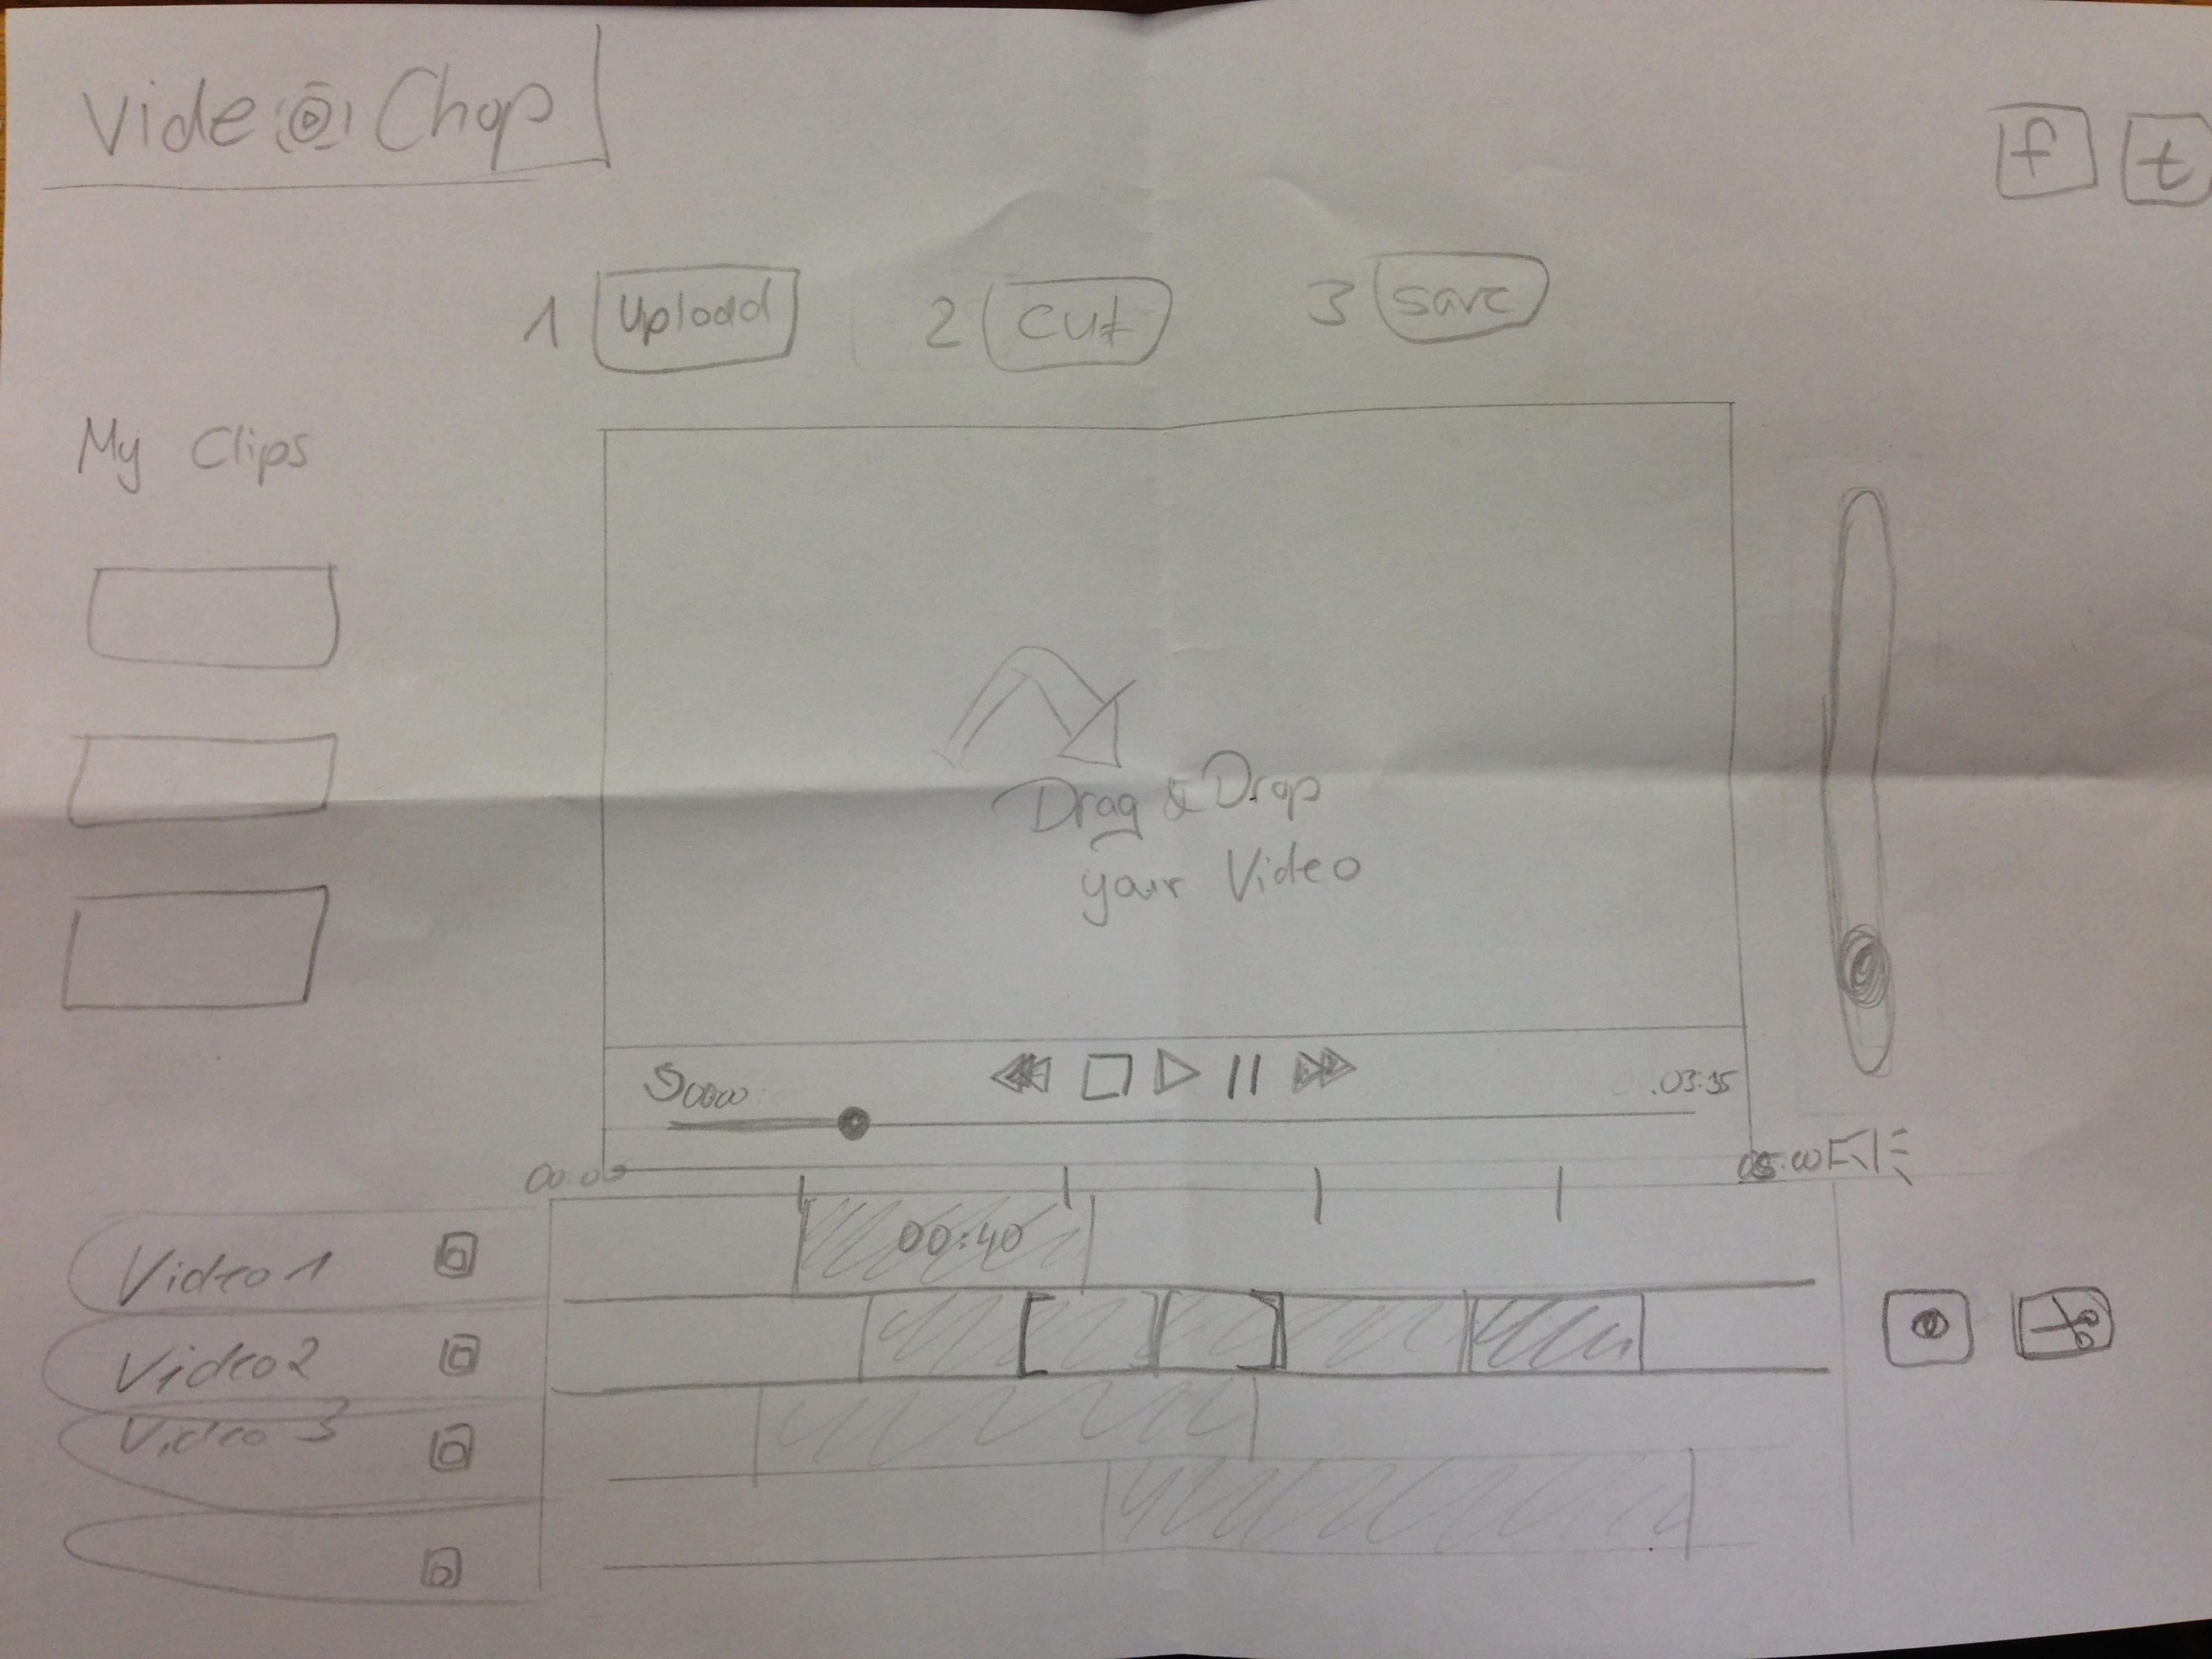 Video Chop
f t
1 Upload 2 cut 3 save
My Clips
Drag & Drop
your Video
03:35
00:00 05:00
Video 1 00:40
Video 2
Video 3